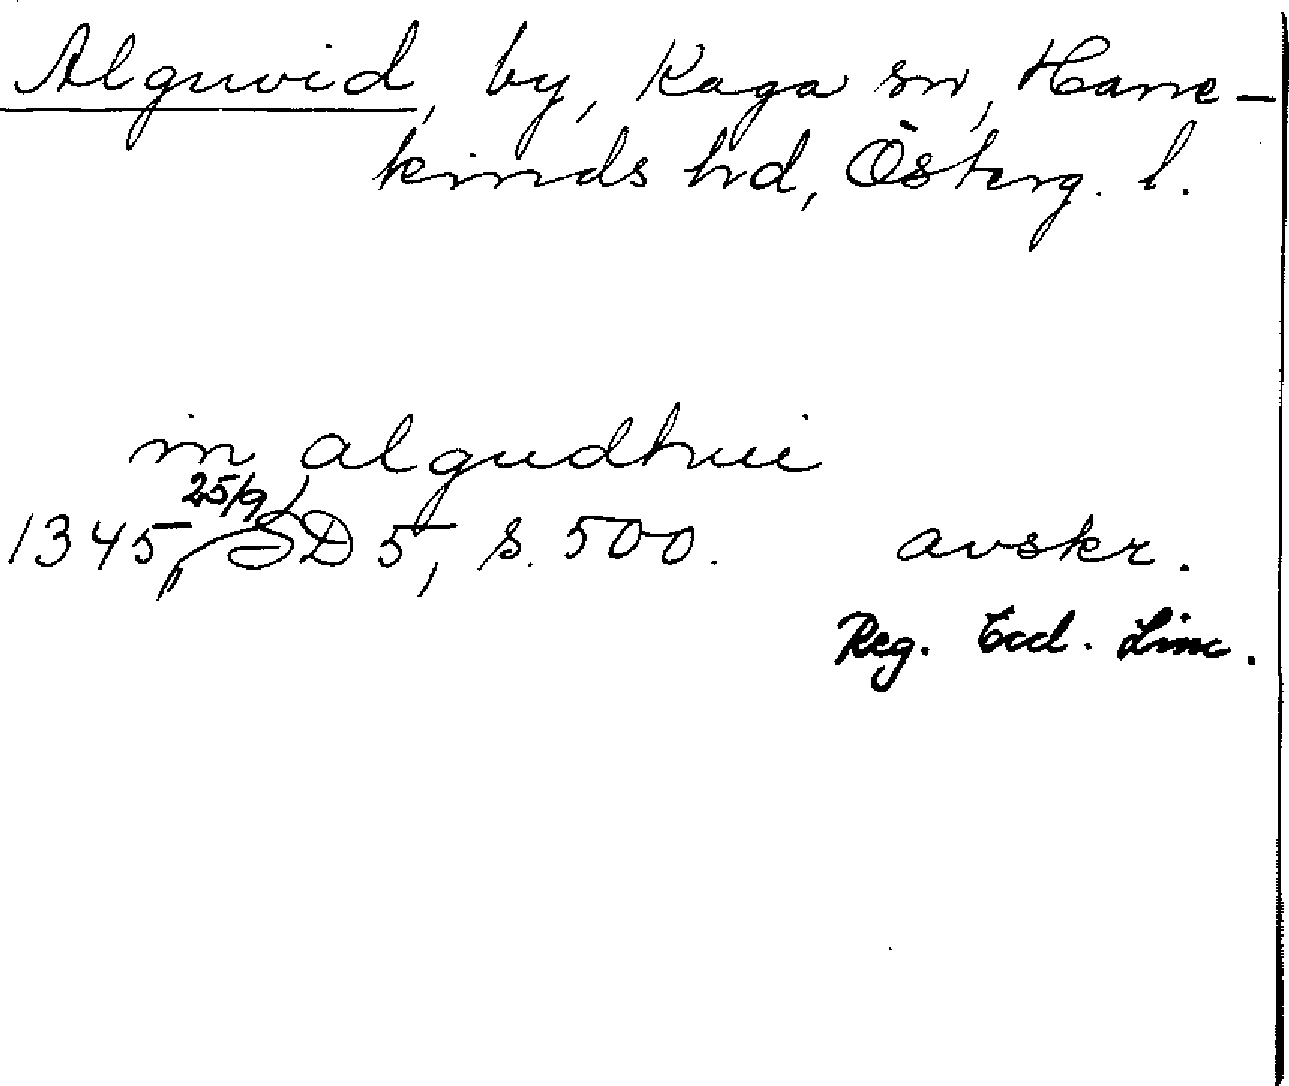 Alguvid, by, Kaga sn, Hane-
kinds hd, Österg. l.
in algudhui
1345 25/9, SD 5, s. 500. avskr.
Reg. Eccl. Linc.